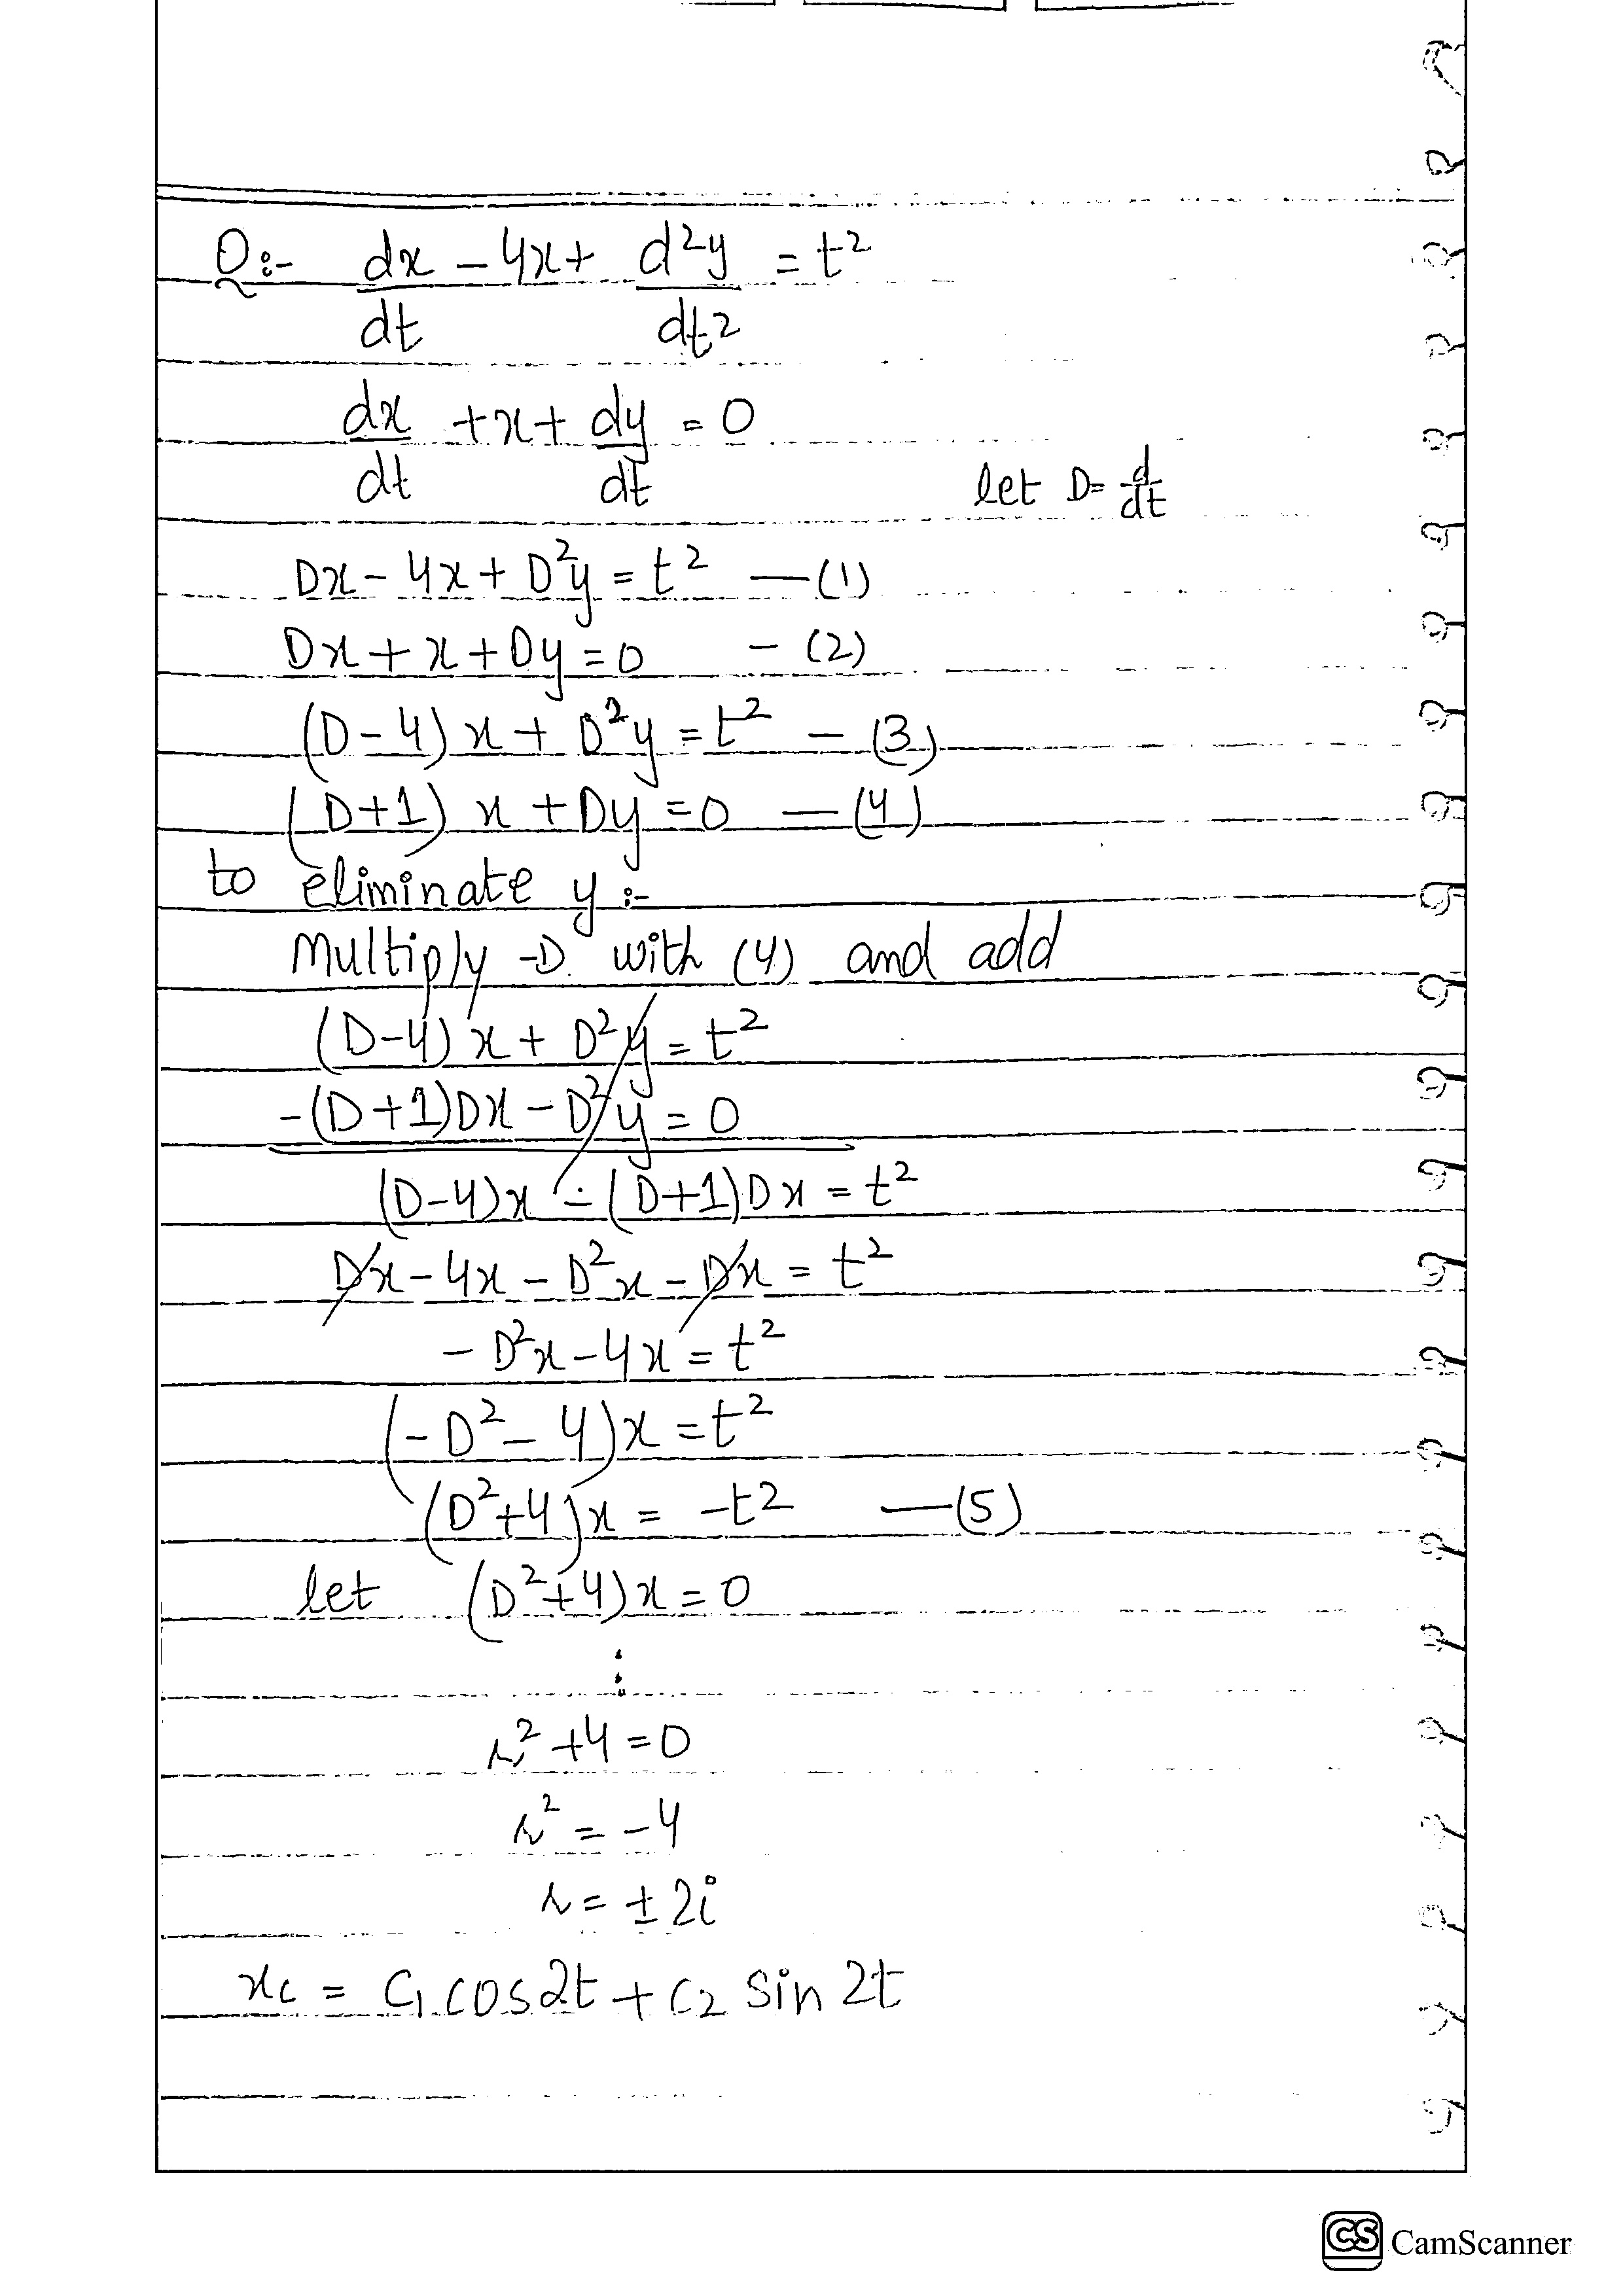 Q:- dx/dt - 4x + d²y/dt² = t²
dx/dt + x + dy/dt = 0
let D = d/dt
Dx - 4x + D²y = t² —(1)
Dx + x + Dy = 0 - (2)
(D-4)x + D²y = t² - (3)
(D+1)x + Dy = 0 —(4)
to eliminate y:-
Multiply -D with (4) and add
(D-4)x + D²y = t²
-(D+1)Dx - D²y = 0
(D-4)x - (D+1)Dx = t²
Dx - 4x - D²x - Dx = t²
- D²x - 4x = t²
(-D² - 4)x = t²
(D²+4)x = -t² —(5)
let (D²+4)x = 0
⋮
r² + 4 = 0
r² = -4
r = ±2i
xc = C1 cos2t + C2 sin2t
CS CamScanner